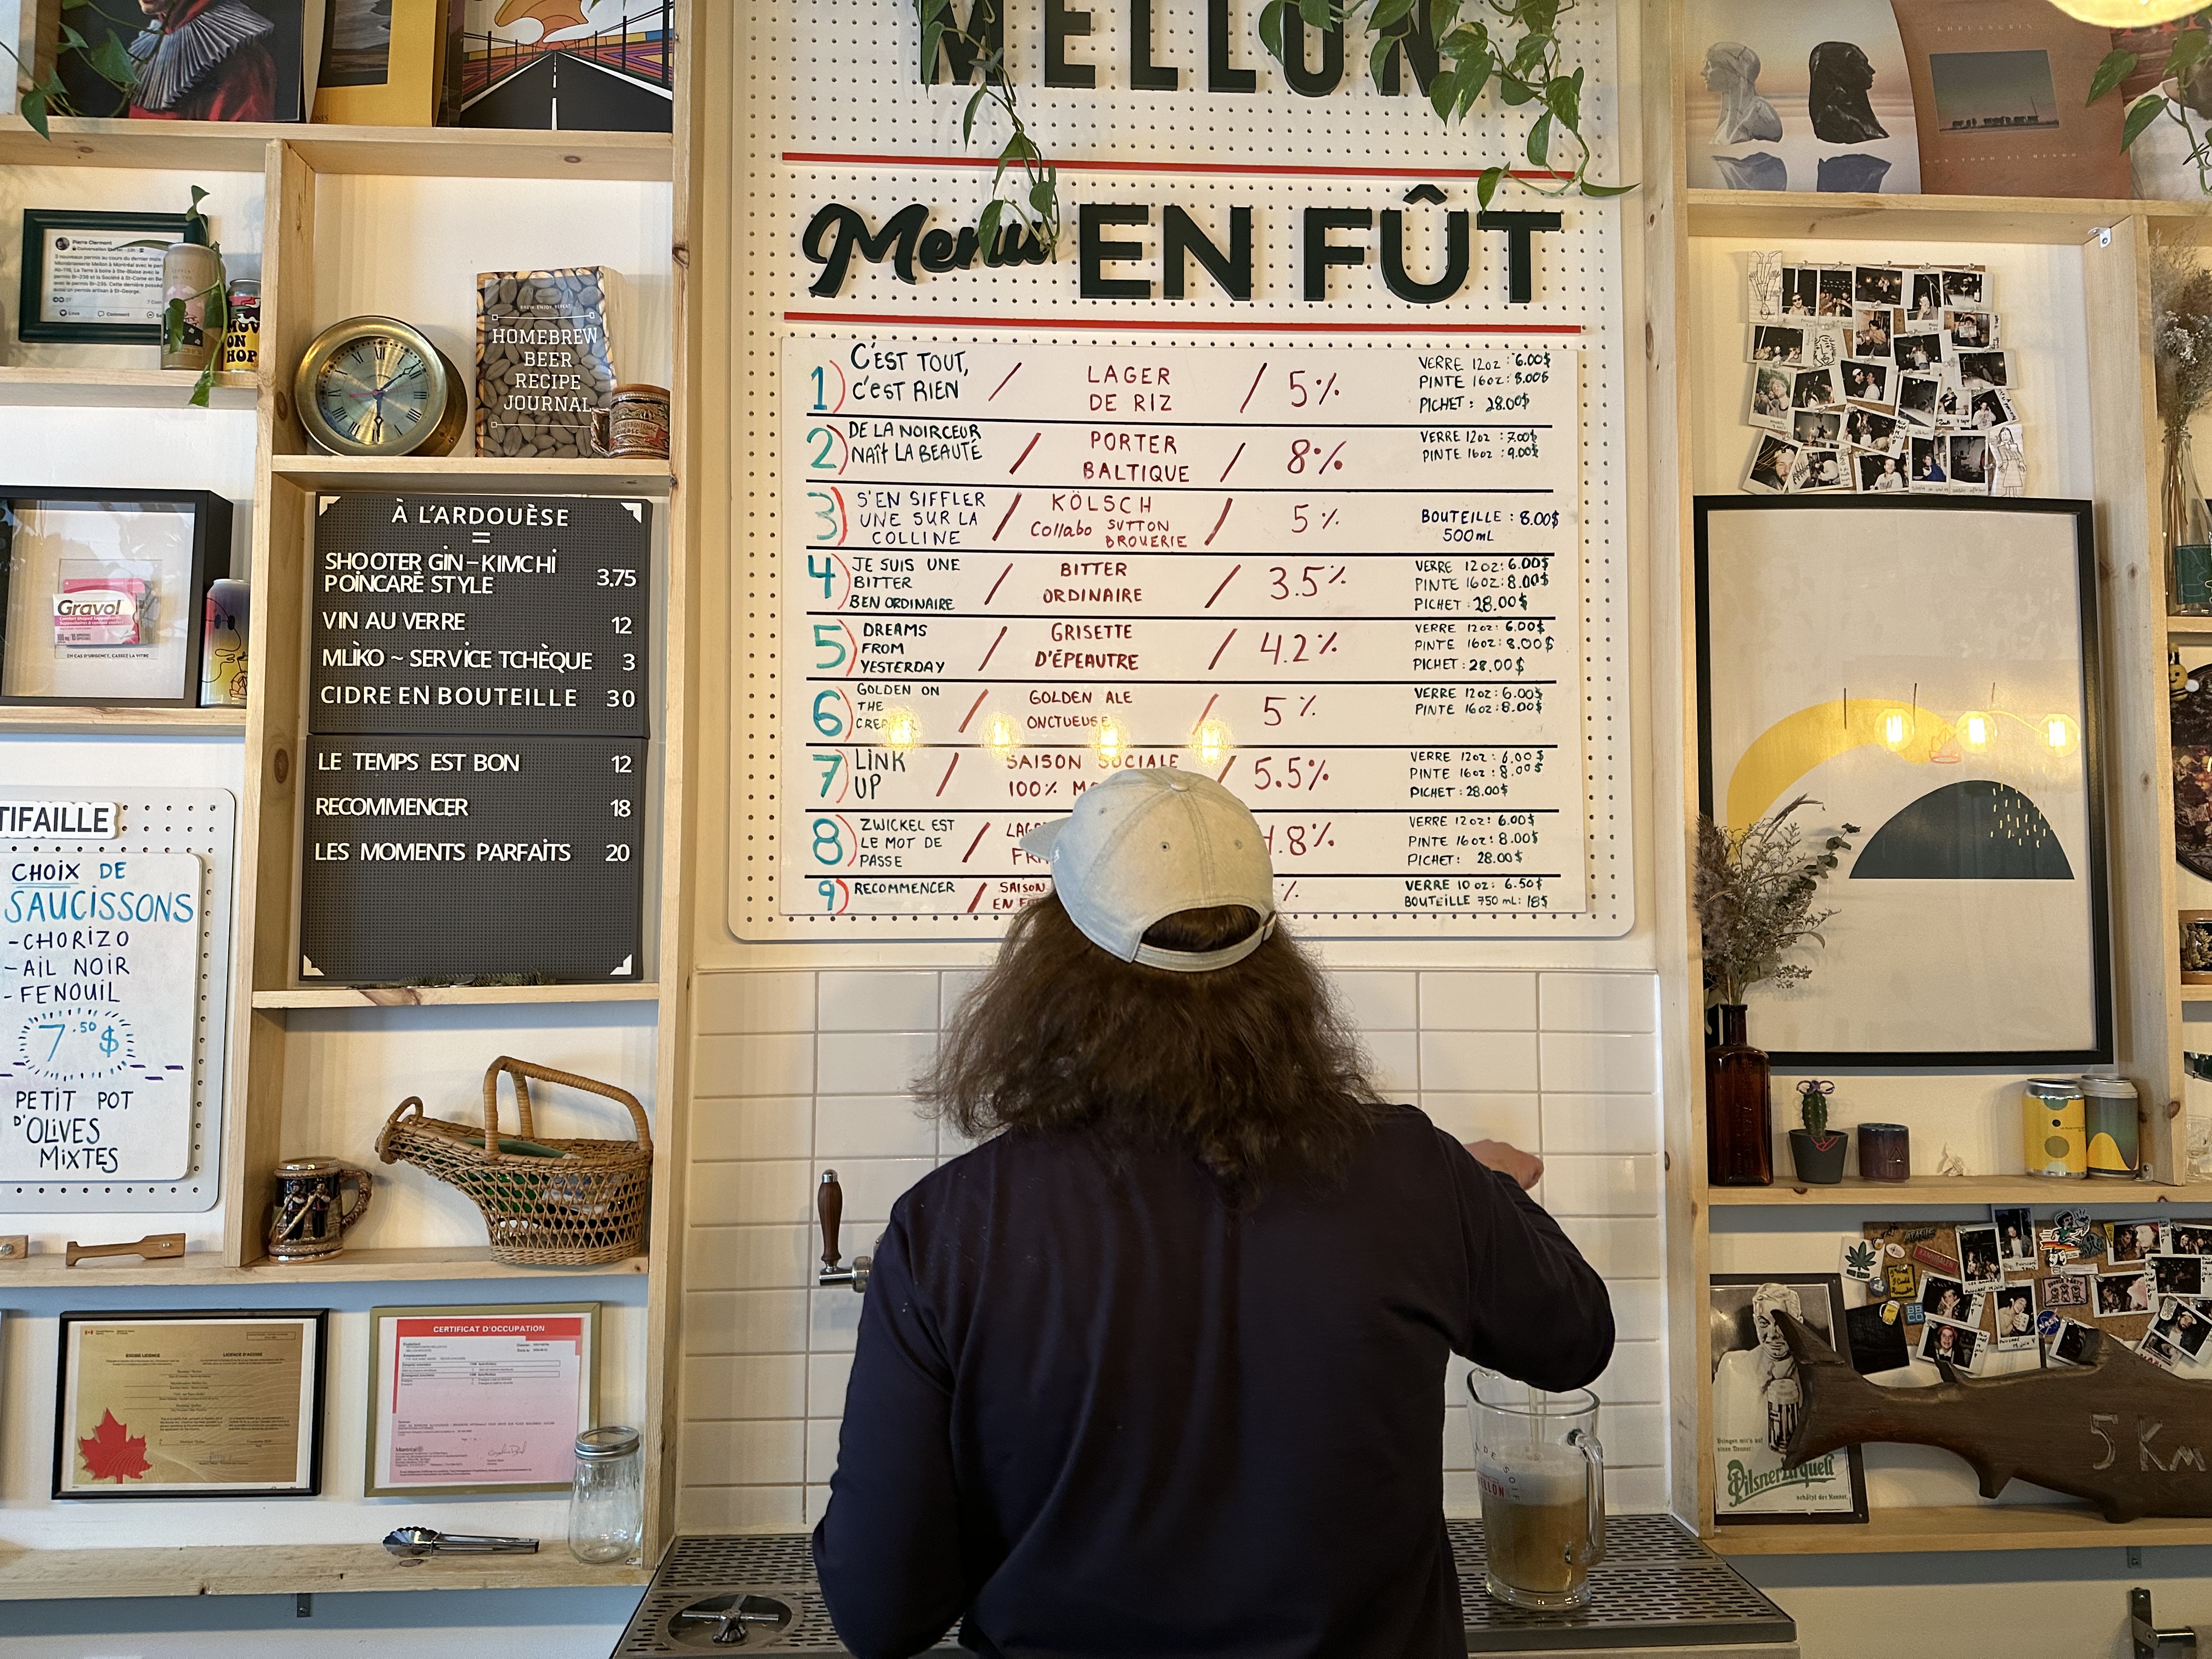 MELLON
Menu EN FÛT
1) C'EST TOUT,
C'EST RIEN
/ LAGER
DE RIZ
/ 5%
VERRE 12oz : 6.00$
PINTE 16oz : 8.00$
PICHET : 28.00$
2) DE LA NOIRCEUR
NAÎT LA BEAUTÉ
/ PORTER
BALTIQUE
/ 8%
VERRE 12oz : 7.00$
PINTE 16oz : 9.00$
3) S'EN SIFFLER
UNE SUR LA
COLLINE
/ KÖLSCH
Collabo SUTTON
BROUERIE
/ 5%
BOUTEILLE : 8.00$
500mL
4) JE SUIS UNE
BITTER
BEN ORDINAIRE
/ BITTER
ORDINAIRE
/ 3.5%
VERRE 12oz: 6.00$
PINTE 16oz: 8.00$
PICHET : 28.00$
5) DREAMS
FROM
YESTERDAY
/ GRISETTE
D'ÉPEAUTRE
/ 4.2%
VERRE 12oz: 6.00$
PINTE 16oz: 8.00$
PICHET : 28.00$
6) GOLDEN ON
THE
/ GOLDEN ALE
ONCTUEUSE
/ 5%
VERRE 12oz: 6.00$
PINTE 16oz: 8.00$
7) LINK
UP
/ SAISON SOCIALE
100%
/ 5.5%
VERRE 12oz: 6.00$
PINTE 16oz: 8.00$
PICHET : 28.00$
8) ZWICKEL EST
LE MOT DE
PASSE
/
.8%
VERRE 12oz: 6.00$
PINTE 16oz: 8.00$
PICHET: 28.00$
9) RECOMMENCER
/ SAISON
EN
%
VERRE 10 oz: 6.50$
BOUTEILLE 750 mL: 18$
Pierre Clermont
MOV
ON
HOP
BREW. ENJOY. REPEAT.
HOMEBREW
BEER
RECIPE
JOURNAL
Gravol
EN CAS D'URGENCE, CASSEZ LA VITRE
À L'ARDOUÈSE
=
SHOOTER GIN – KIMCHI
POINCARÉ STYLE 3.75
VIN AU VERRE 12
MLÌKO ~ SERVICE TCHÈQUE 3
CIDRE EN BOUTEILLE 30
LE TEMPS EST BON 12
RECOMMENCER 18
LES MOMENTS PARFAITS 20
TIFAILLE
CHOIX DE
SAUCISSONS
- CHORIZO
- AIL NOIR
- FENOUIL
7.50 $
PETIT POT
D'OLIVES
MIXTES
EXCISE LICENCE
LICENCE D'ACCISE
CERTIFICAT D'OCCUPATION
Montréal
NASA
Pilsner Urquell
schätzt der Kenner.
5 Km